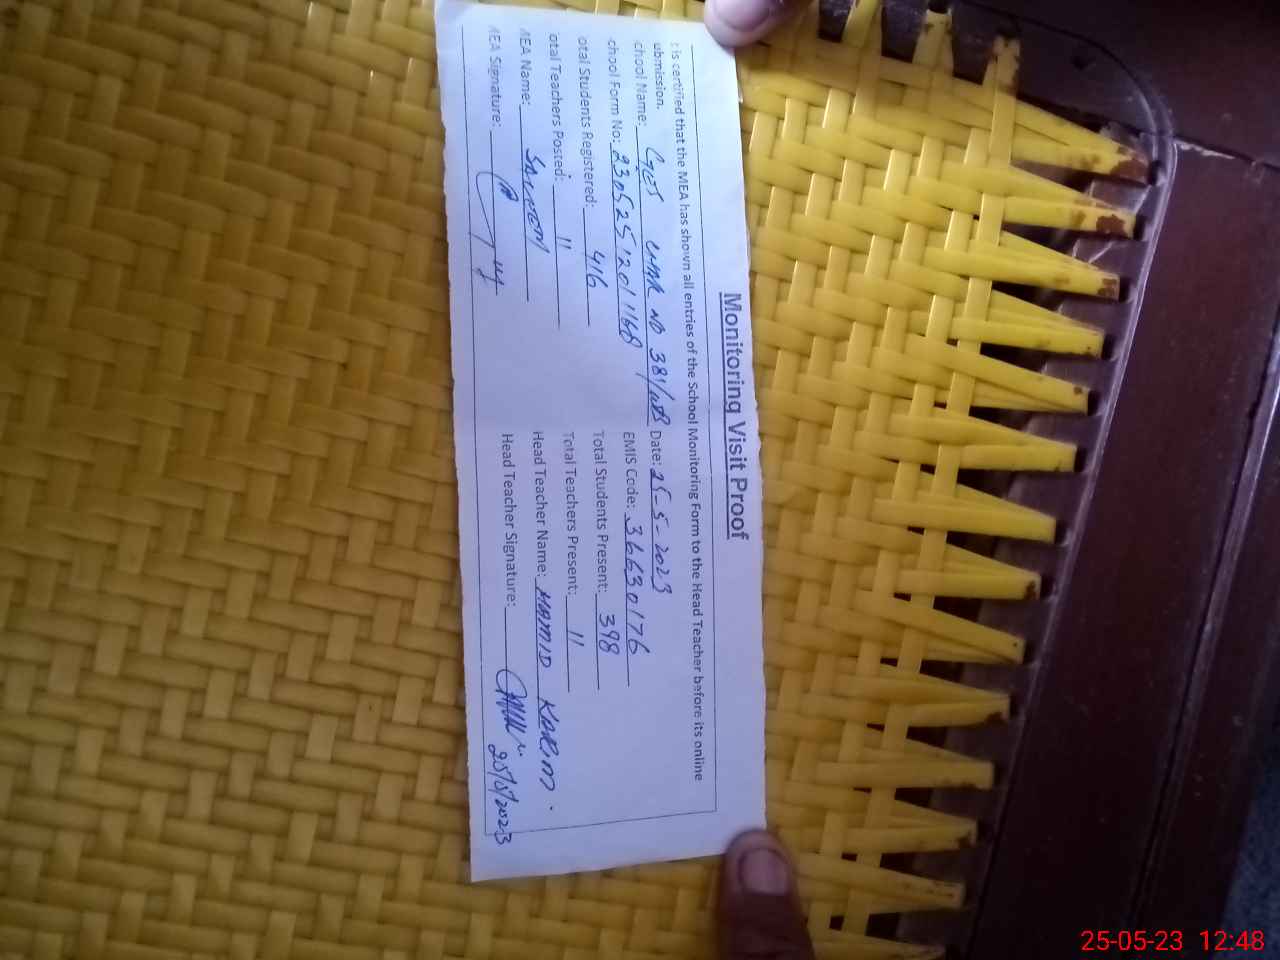 Monitoring Visit Proof
t is certified that the MEA has shown all entries of the School Monitoring Form to the Head Teacher before its online
ubmission.
chool Name: 381/WB Date: 25-5-2023
chool Form No: EMIS Code: 36630176
otal Students Registered: 416 Total Students Present: 398
otal Teachers Posted: 11 Total Teachers Present: 11
MEA Name: Head Teacher Name: HAMID KARIM.
MEA Signature: Head Teacher Signature: 25/5/2023
25-05-23 12:48